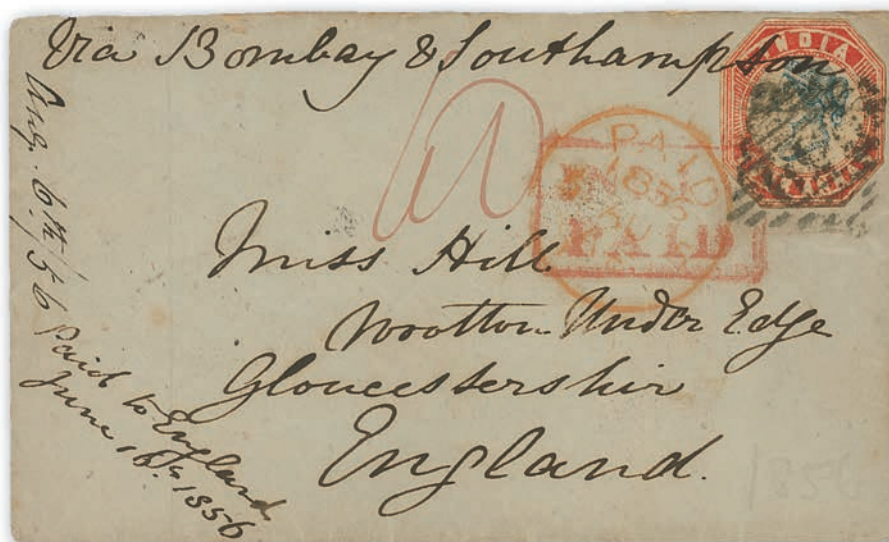 Via Bombay & Southampton
INDIA
ANNAS
PAID
1856
PAID
Miss Hill
Wootton Under Edge
Gloucestershir
England.
Aug. 6th/56 Paid to England
June 16th. 1856